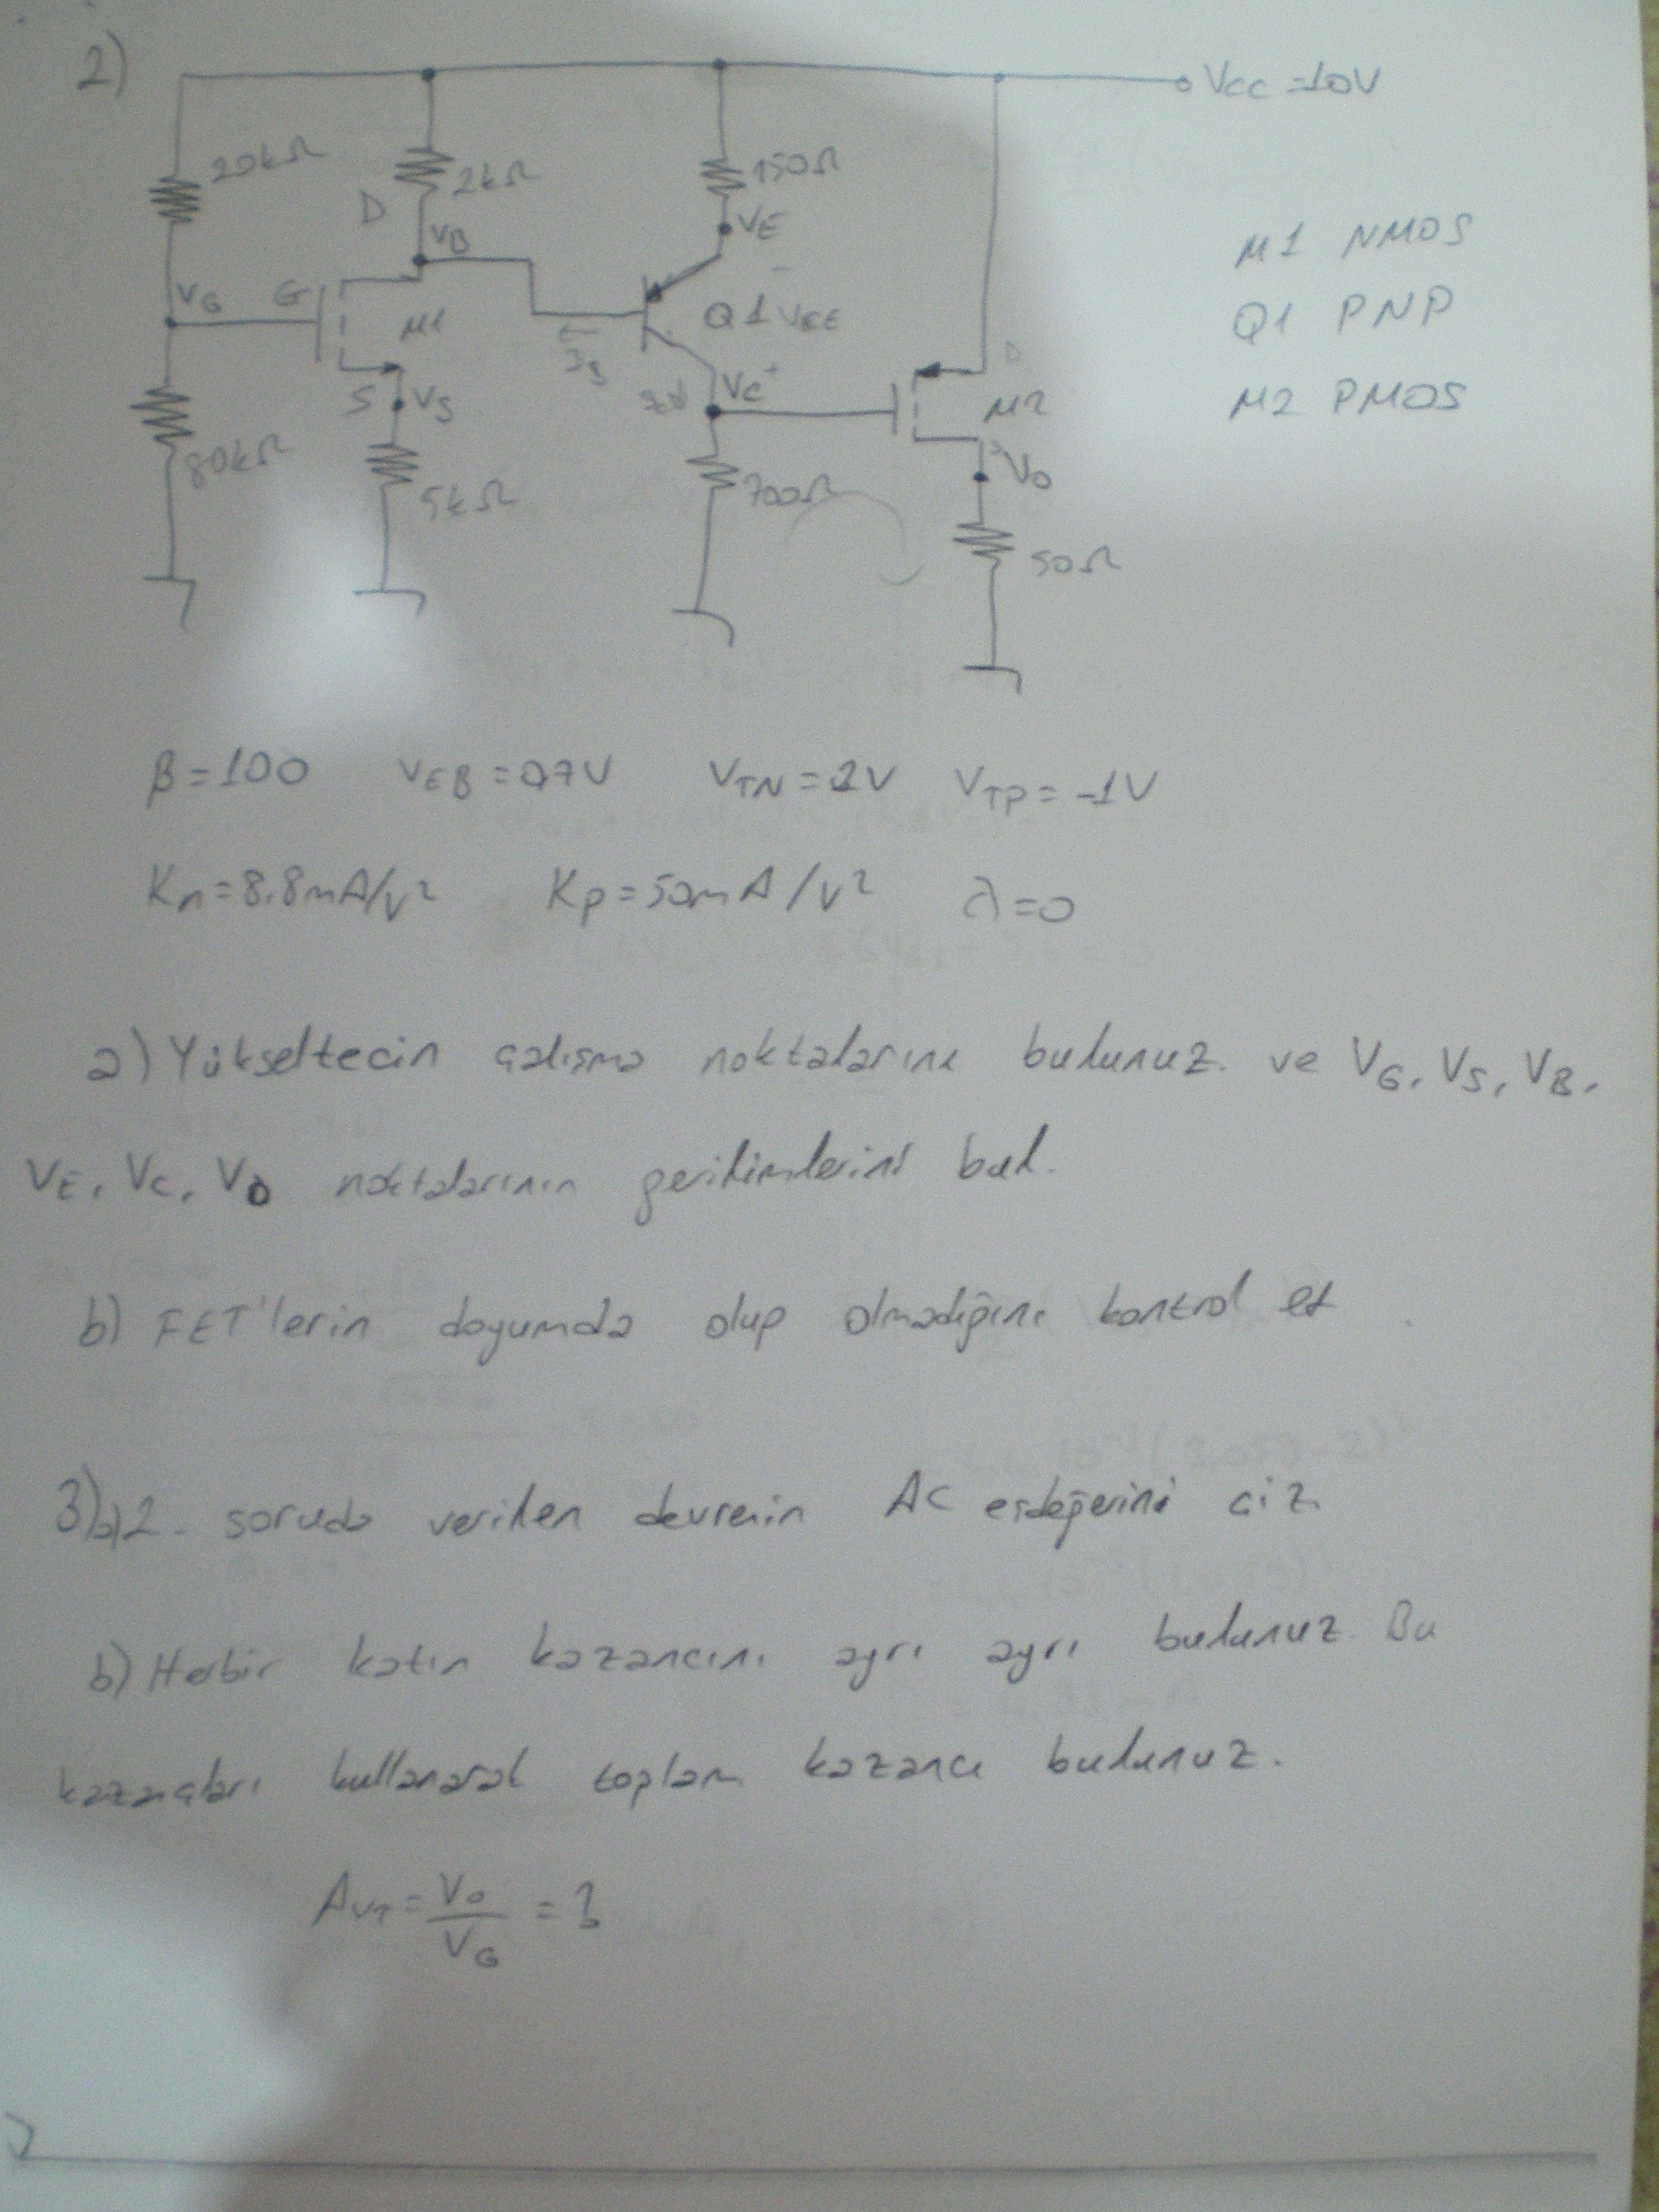 2)
VCC =10V
20kΩ
2kΩ
150Ω
D
VB
VE
VG
G
M1
Q1 VCE
IB
D
S
VS
VC +
M2
80kΩ
700Ω
Vo
50Ω
M1 NMOS
Q1 PNP
M2 PMOS
β=100 VEB=0.7V VTP=-1V
Kn=8.8mA/V² Kp=50mA/V² λ=0
a) Yükseltecin çalışma noktalarını bulunuz. ve VG, VS, VB,
VE, VC, VO noktalarının gerilimlerini bul.
b) FET'lerin doyumda olup olmadığını kontrol et
3)a)2. soruda verilen devrenin AC eşdeğerini çiz.
b) Herbir katın kazancını ayrı ayrı bulunuz. Bu
kazançları kullanarak toplam kazancı bulunuz.
AVT = Vo/VG = ?